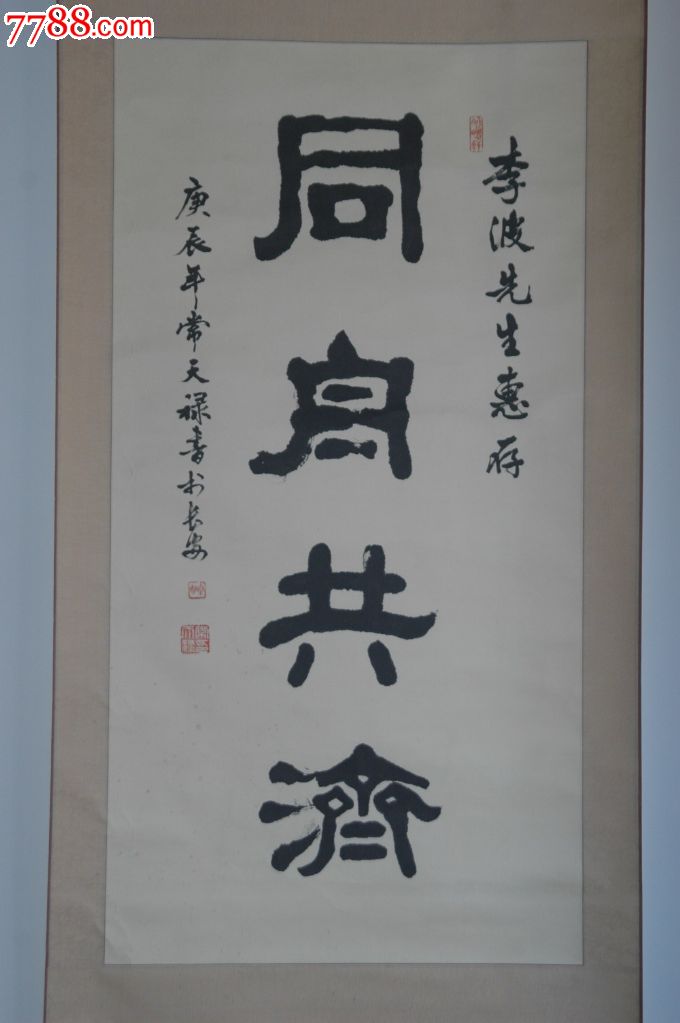 7788.com
李波先生惠存
同舟共济
庚辰年常天禄书于长安